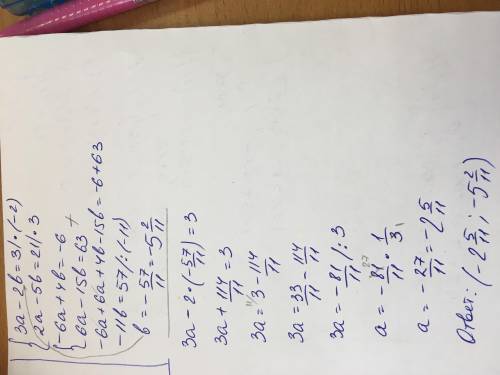 {3a - 2b = 3 | · (-2)
{2a - 5b = 21 | · 3
{-6a + 4b = -6
{6a - 15b = 63 +
-6a + 6a + 4b - 15b = -6 + 63
-11b = 57 | : (-11)
b = -57/11 = -5 2/11
3a - 2 · (-57/11) = 3
3a + 114/11 = 3
3a = 3 - 114/11
3a = 33/11 - 114/11
3a = -81/11 | : 3
a = -81/11 · 1/3
a = -27/11 = -2 5/11
Ответ: (-2 5/11; -5 2/11)